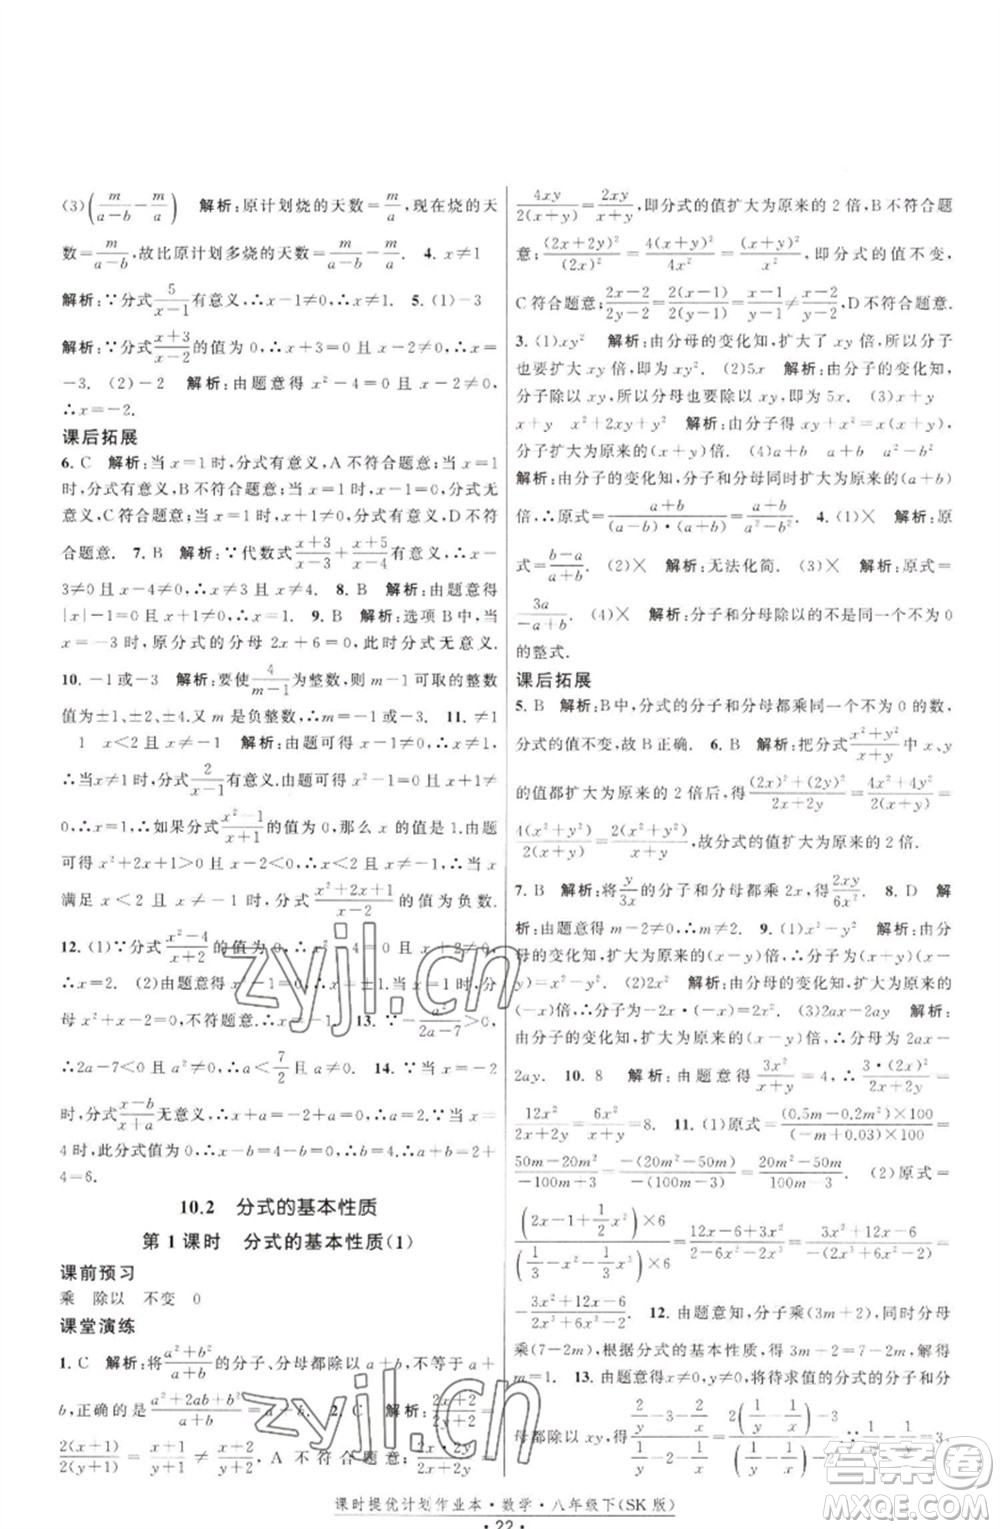 (3)(m/(a−b) − m/a) 解析:原计划烧的天数=m/a,现在烧的天
数=m/(a−b),故比原计划多烧的天数=m/(a−b)−m/a. 4. x≠1
解析:∵分式5/(x−1)有意义,∴x−1≠0,∴x≠1. 5. (1)−3
解析:∵分式(x+3)/(x−2)的值为0,∴x+3=0且x−2≠0,∴x=
−3. (2)−2 解析:由题意得x²−4=0且x−2≠0,
∴x=−2.
课后拓展
6. C 解析:当x=1时,分式有意义,A不符合题意;当x=
1时,分式有意义,B不符合题意;当x=1时,分式无
意义,C符合题意;当x=1时,分式有意义,D不符
合题意. 7. B 解析:∵代数式(x+3)/(x−3)÷(x+5)/(x−4)有意义,∴x−
3≠0且x−4≠0,∴x≠3且x≠4. 8. B 解析:由题意得
|x|−1=0且x−1≠0,∴x=−1. 9. B 解析:选项B中,当
x=−3时,原分式的分母2x+6=0,此时分式无意义.
10. −1或−3 解析:要使4/(m−1)为整数,则m−1可取的整数
值为±1、±2、±4.又m是负整数,∴m=−1或−3. 11. ≠1
1 x<2且x≠1 解析:由题可得x−1≠0,
∴x≠1,∴当x≠1时,分式2/(x−1)有意义.由题可得x²−1=
0,x+1≠0,∴x=1,∴如果分式(x²−1)/(x+1)的值为0,那么x的值是1.由题
可得x²+2x+1>0,x−2<0,∴x<2且
x≠−1,∴当x<2且x≠−1时,分式(x²+2x+1)/(x−2)的值为负数.
12. (1)∵分式(x²−4)/(x+2)的值为0,∴x²−4=0且x+2≠0,
∴x=2. (2)由题意得x+1=0,∴x=−1.当x=−1时,分
母x+1=0,不符题意. 13. ∵−a²/(2a−7)>0,
∴2a−7<0且a²≠0,∴a<7/2且a≠0. 14. ∵x=−2
时,分式(x−b)/(x+a)无意义,∴x+a=−2+a=0,∴a=2.又∵x=
4时,此分式值为0,∴x−b=4−b=0,∴b=4,∴a+b=2+
4=6.
10.2 分式的基本性质
第1课时 分式的基本性质(1)
课前预习
乘 除以 不变 0
课堂演练
1. C 解析:将(a²+b²)/(a+b)的分子、分母都除以a+b,不等于a+
b,正确的是(a²+2ab+b²)/(a+b)=a+b. 2. C 解析:(2x+2)/(2y+2)=
2(x+1)/2(y+1)=(x+1)/(y+1)≠x/y,A不符合题意;(2x·2y)/(2x+2y)=
4xy/2(x+y)=2xy/(x+y),即分式的值扩大为原来的2倍,B不符合题
意;(2x+2y)²/(2x)²=4(x+y)²/4x²=(x+y)²/x²,即分式的值不变,
C符合题意;(2x−2)/(2y−2)=2(x−1)/2(y−1)=(x−1)/(y−1)≠x/y,D不符合题意.
3. (1)xy² 解析:由分母的变化知,扩大了xy倍,所以分子
也要乘以xy,即为xy². (2)5x 解析:由分子的变化知,
分子除以xy,所以分母也要除以xy,即为5x. (3)x+y
x+y x²+xy 解析:由分子得xy+x²=x(x+y),
分子扩大为原来的(x+y)倍. (4)a+b a+b a²−b²
解析:由分子的变化知,分子和分母同时扩大为原来的(a+b)
倍,∴原式=(a+b)/((a−b)·(a+b))=(a+b)/(a²−b²). 4. (1)× 解析:原
式=(b−a)/(a+b). (2)× 解析:无法化简. (3)× 解析:原式=
3a/(−a+b). (4)× 解析:分子和分母除以的不是同一个不为0
的整式.
课后拓展
5. B 解析:分式的分子和分母同乘或除以一个不为0的数,
分式的值不变,故B正确. 6. B 解析:把分式(x²+y²)/(x+y)中x、y
的值都扩大为原来的2倍后,得((2x)²+(2y)²)/(2x+2y)=(4x²+4y²)/2(x+y)=
4(x²+y²)/2(x+y)=2(x²+y²)/(x+y),故分式的值扩大为原来的2倍.
7. B 解析:将y/3x的分子和分母都乘2x,得2xy/6x². 8. D 解
析:由题意得10−m≠0,∴m≠10. 9. (1)x²−y² 解析:由分
母的变化知,扩大为原来的(x−y)倍,∴分子为(x+y)(x−
y)=x²−y². (2)−x²−x 解析:由分母的变化知,扩大为原来的
(−x)倍,∴分子为(x+1)·(−x)=−x²−x. (3)2ax−2ay 解析:
由分子的变化知,扩大为原来的(x−y)倍,∴分母为2a(x−y)=2ax−
2ay. 10. 8 解析:由题意得3x²/(x+y)=4,∴3·(2x)²/(2x+2y)=
12x²/2(x+y)=6x²/(x+y)=8. 11. (1)原式=(0.5m−0.2m²)×100/((−m+0.03)×100)=
(50m−20m²)/(−100m+3)=−(50m−20m²)/(100m−3)=(20m²−50m)/(100m−3). (2)原式=
−(2x−1+1/2x²)/(1/3−x−2/3x²)=(12x−6+3x²)/(2−6x−4x²)=
−(3x²+12x−6)/(4x²+6x−2). 12. 由题意知,分子乘(3m+2),同时分母
乘(7−2m),根据分式的基本性质,得3m+2=7−2m,解得
m=1. 13. 由题意知x≠0,y≠0,将待求值的分式的分子和分
母都除以xy,得